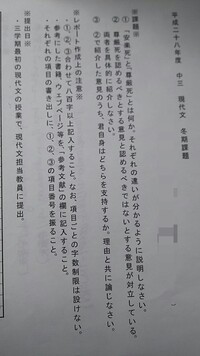 平成二十八年度　中三　現代文　冬期課題
※課題※
①「安楽死」と「尊厳死」とは何か。それぞれの違いが分かるように説明しなさい。
②　尊厳死を認めるべきとする意見と認めるべきではないとする意見が対立している。
両者を具体的に紹介しなさい。
③　②で紹介した意見のうち、君自身はどちらを支持するか。理由と共に論じなさい。
※レポート作成上の注意※
・①、②、③合わせて八百字以上記入すること。なお、項目ごとの字数制限は設けない。
・参考にした書籍、ウェブページ等を、「参考文献」の欄に記入すること。
・それぞれの項目の書き出しに①、②、③の項目番号を振ること。
※提出日※
・三学期最初の現代文の授業で、現代文担当教員に提出。